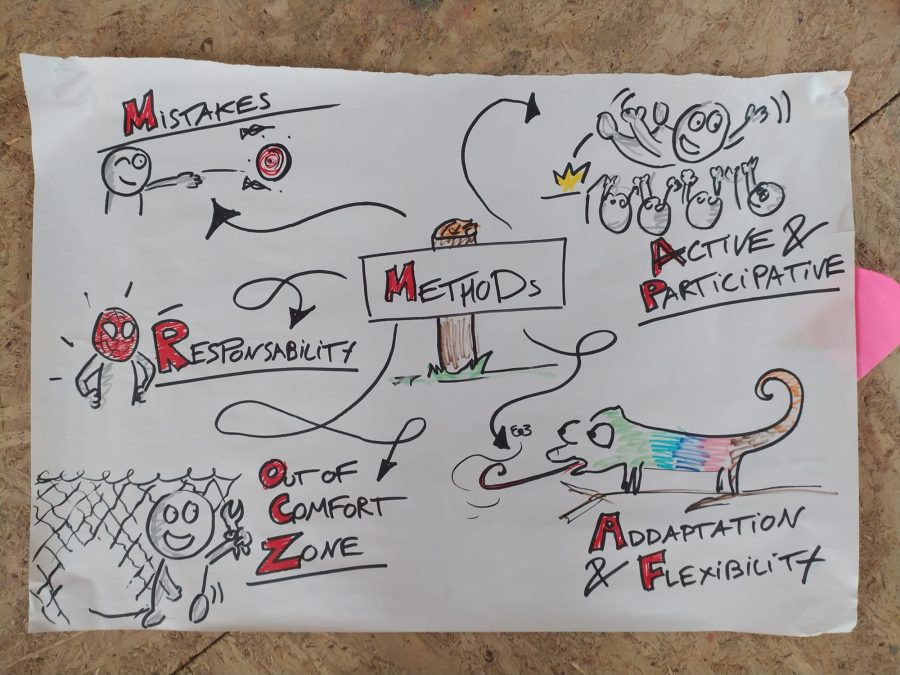 MISTAKES
METHODS
ACTIVE &
PARTICIPATIVE
RESPONSABILITY
OUT OF
COMFORT
ZONE
ADDAPTATION
& FLEXIBILITY